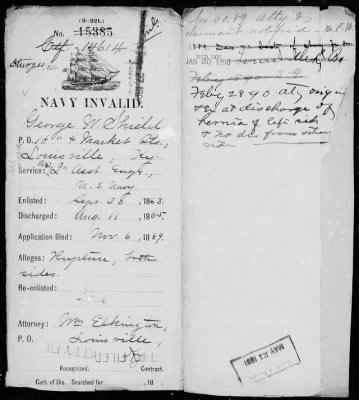 (3-221.)
No. 15385
Ctf. 14614
Sturges
NAVY INVALID.
George W. Shield
P. O. & Market Sts,
Louisville, Ky.
Service: 2d Asst. Engr.,
U. S. Navy.
Enlisted: Sept. 30, 1863.
Discharged: Aug. 11, 1865.
Application filed: Nov. 6, 1889.
Alleges: Rupture, both
sides.
Re-enlisted:
Attorney: Wm Elkington,
P. O. Louisville,
Ky
Recognized. Contract.
Cert. of Dis. Searched for , 18 .
Nov. 30. 89 Atty &
claimant notified
JAN 20 1890
Feby 28 90 Atty origin
& ex at discharge of
hernia of left side
& no dis from other
side
MAY 23 1891